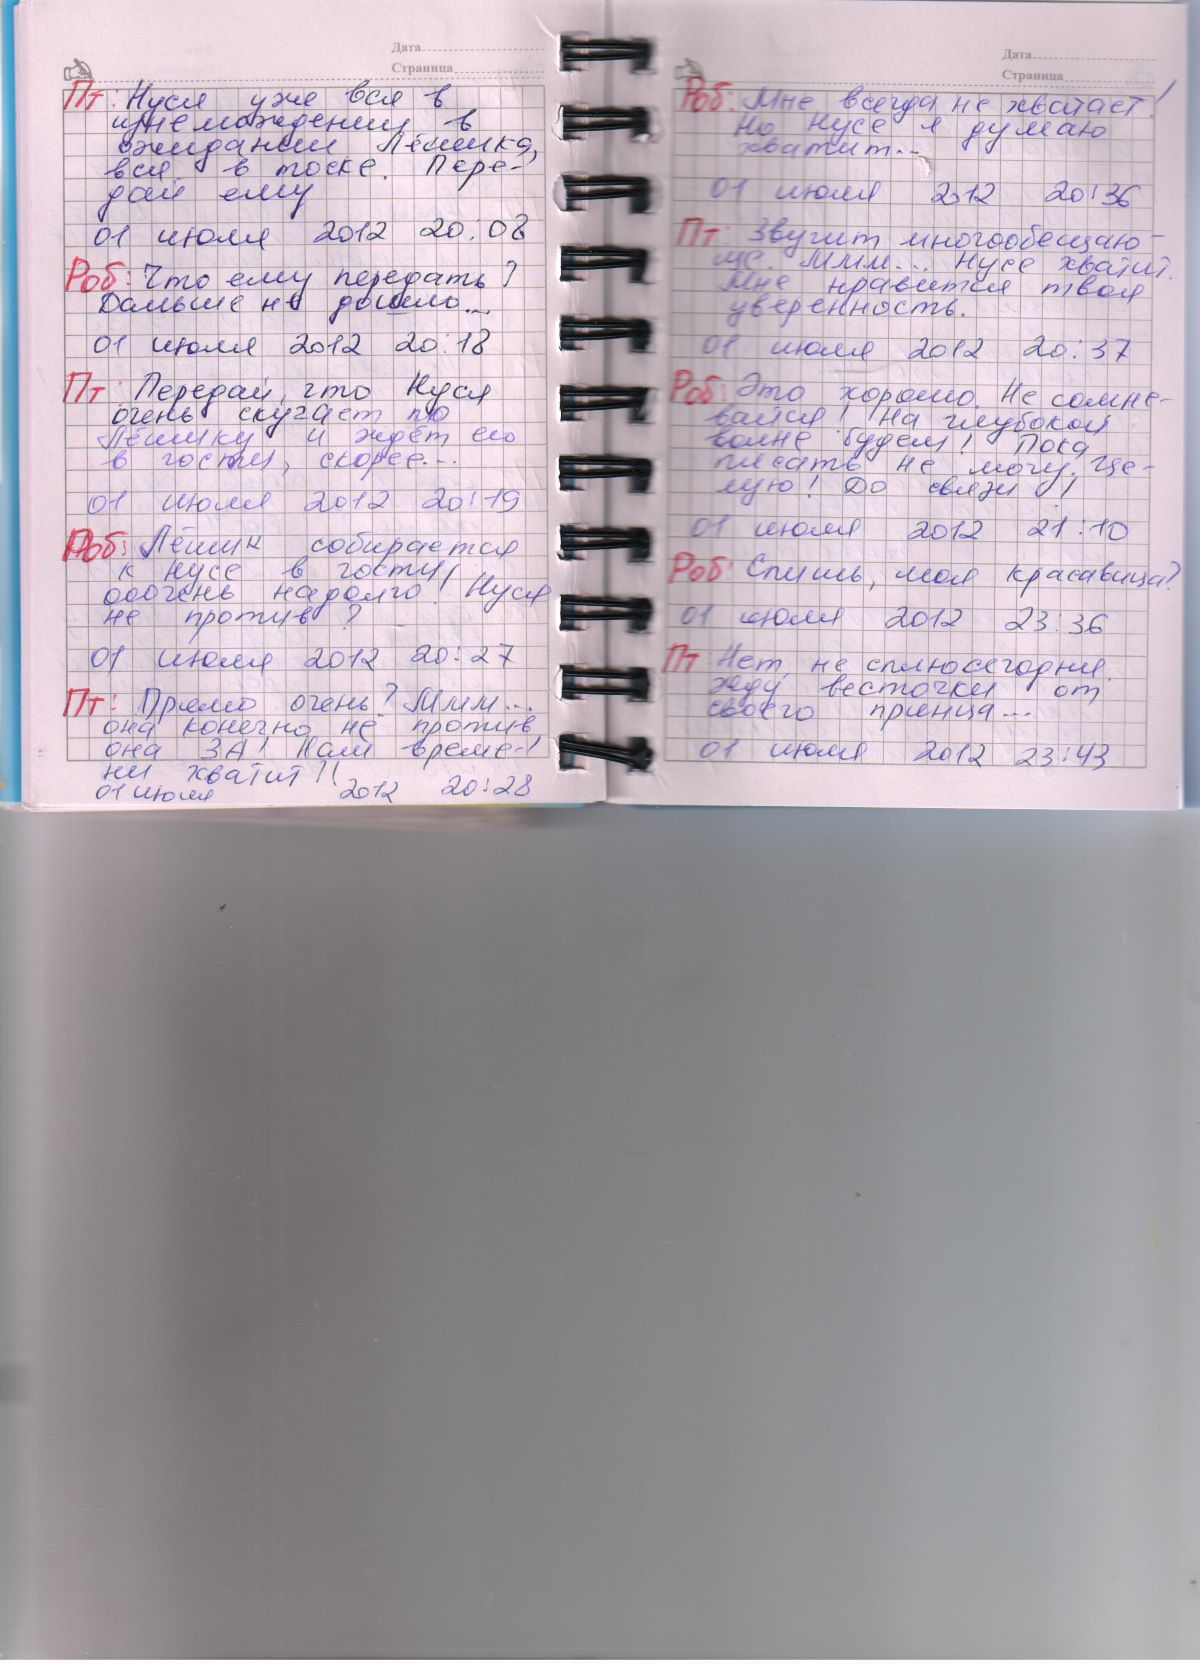 Дата
Страница
Пт: Нуся уже вся в
изнемождении в
ожидании Лёшика,
вся в тоске. Пере-
дай ему
01 июля 2012 20:08
Роб: Что ему передать?
Дальше не дошло...
01 июля 2012 20:18
Пт: Передай, что Нуся
очень скучает по
Лёшику и ждёт его
в гости, скорее...
01 июля 2012 20:19
Роб: Лёшик собирается
к Нусе в гости,
ооочень надолго! Нуся
не против?
01 июля 2012 20:27
Пт: Прямо очень? Ммм...
она конечно не против
она ЗА! Нам време-
ни хватит?!
01 июля 2012 20:28
Дата
Страница
Роб: Мне всегда не хватает!
Но Нусе я думаю
хватит...
01 июля 2012 20:36
Пт: Звучит многообещаю-
ще. Ммм... Нусе хватит.
Мне нравится твоя
уверенность.
01 июля 2012 20:37
Роб: Это хорошо. Не сомне-
вайся! На глубокой
волне будем! Пока
писать не могу. Це-
лую! До связи!
01 июля 2012 21:10
Роб: Спишь, моя красавица?
01 июля 2012 23:36
Пт Нет, не сплю сегодня.
Жду весточки от
своего принца...
01 июля 2012 23:43